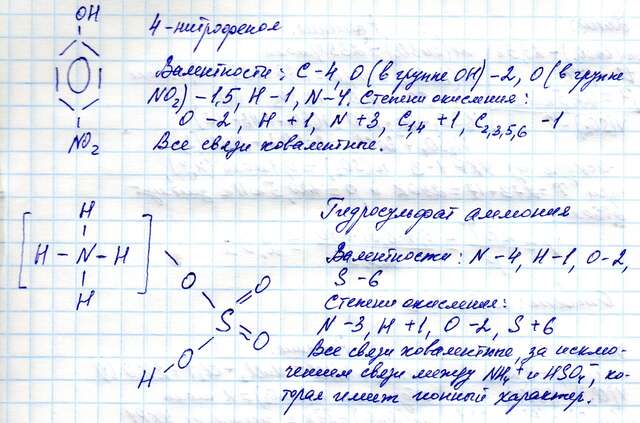 OH
4-нитрофенол
Валентности: C-4, O (в группе OH) -2, O (в группе
NO2) -1,5, H-1, N-4. Степени окисления:
O -2, H +1, N +3, C1,4 +1, C2,3,5,6 -1
NO2
Все связи ковалентные.
H
Гидросульфат аммония
H-N-H
Валентности: N-4, H-1, O-2,
S-6
H
O
O
Степени окисления:
S
N-3, H+1, O-2, S+6
O
Все связи ковалентные, за исклю-
O
чением связи между NH4+ и HSO4-, ко-
H
торая имеет ионный характер.